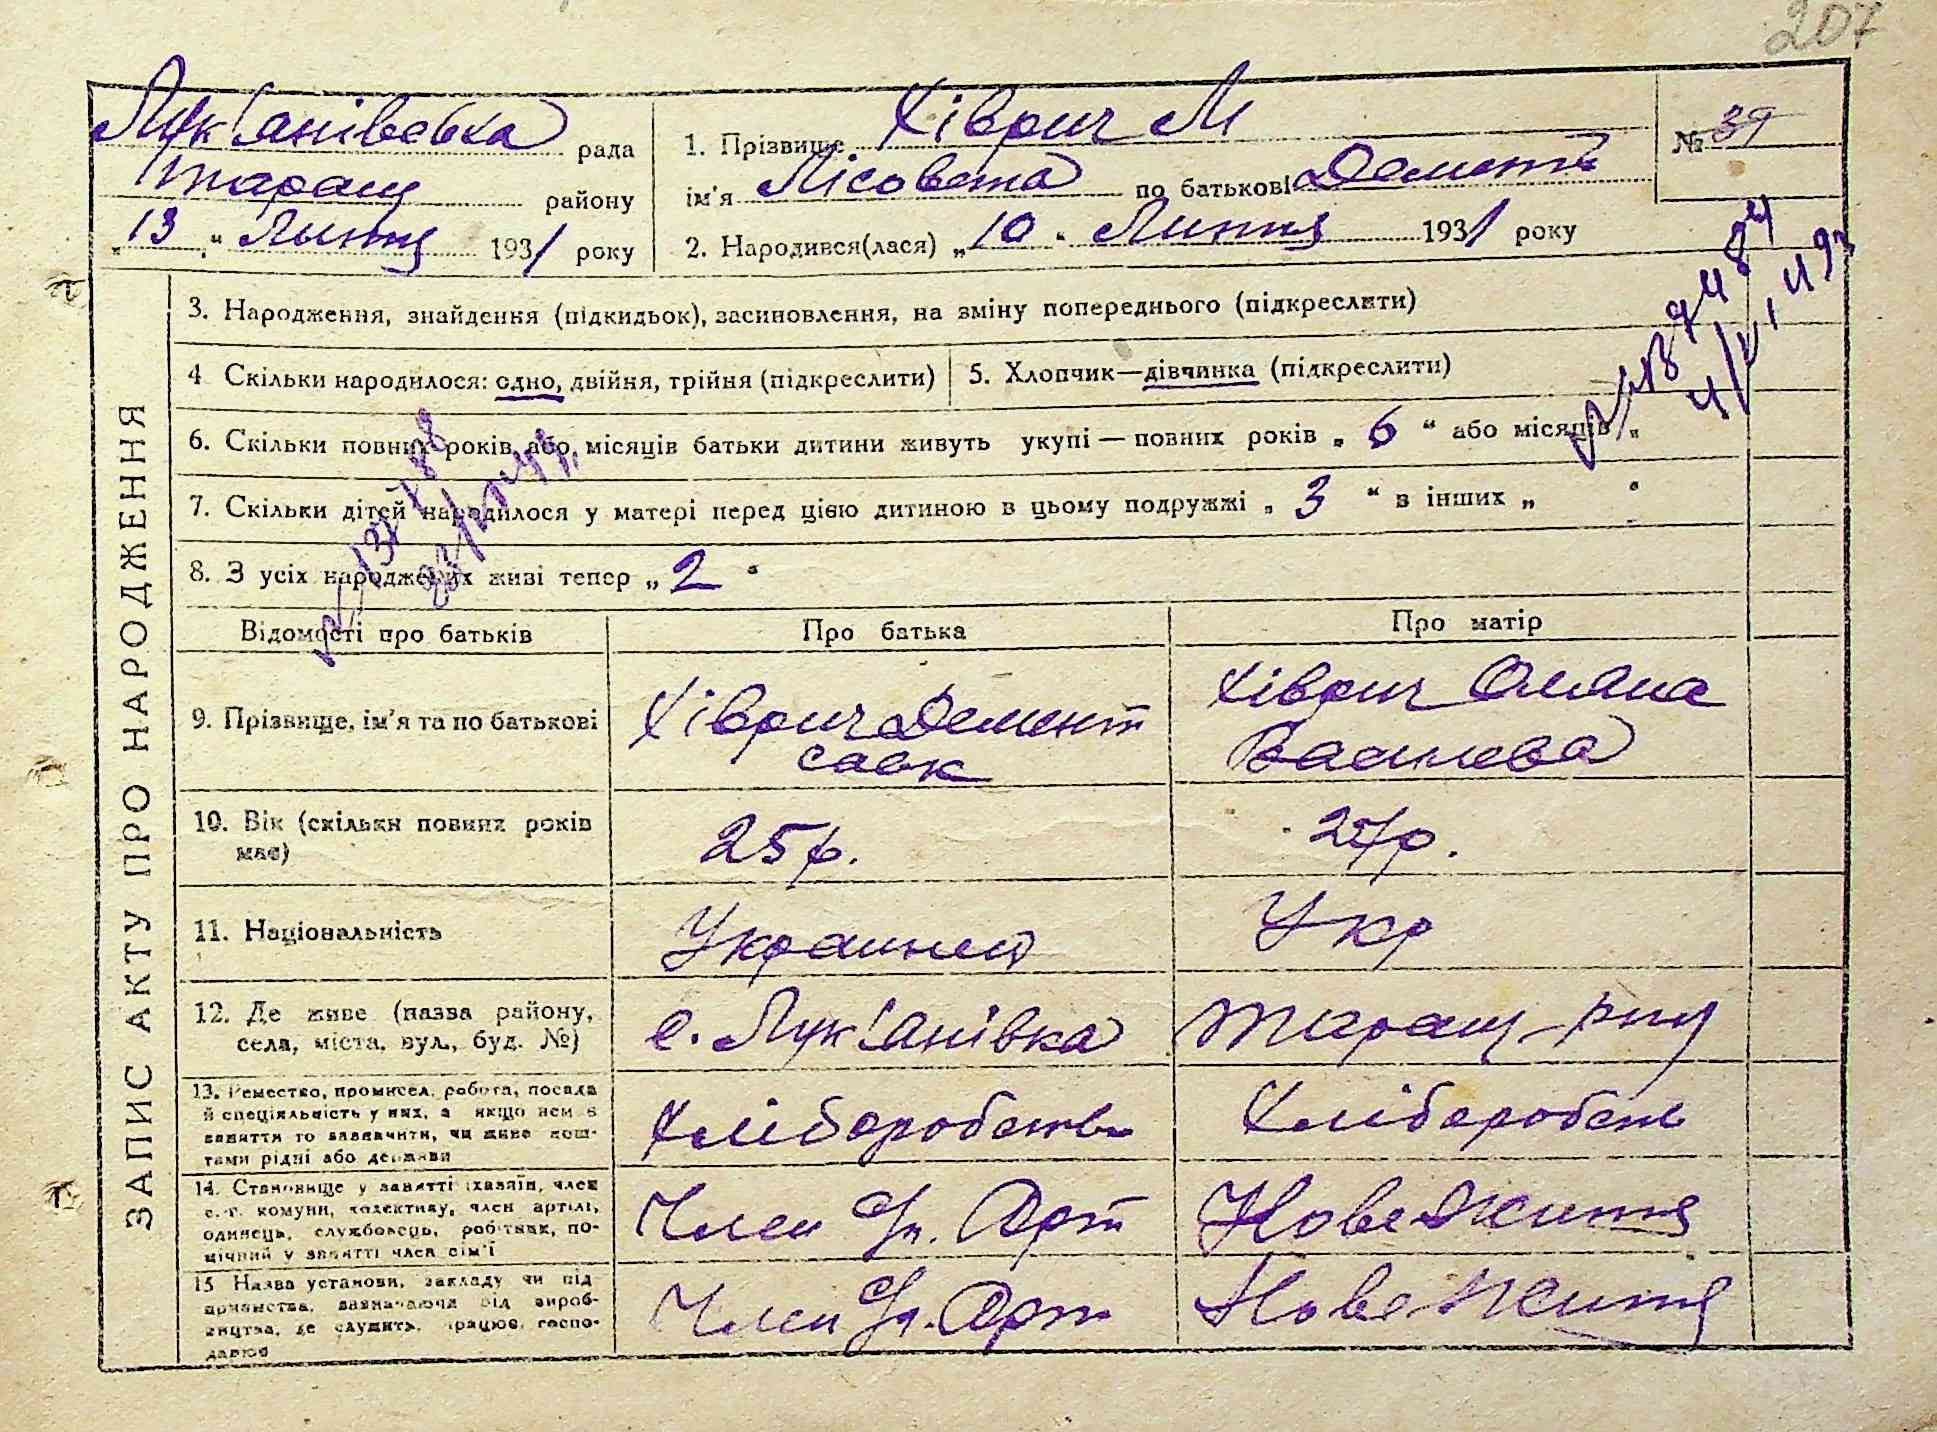 207
Лук'янівська рада
Таращ району
„13" Лютня 1931 року
1. Прізвище Хіврич М
ім'я Лісовета по батькові Демент
2. Народився(лася) „10" Лютня 1931 року
№ 39
ЗАПИС АКТУ ПРО НАРОДЖЕННЯ
3. Народження, знайдення (підкидьок), засиновлення, на зміну попереднього (підкреслити)
4 Скільки народилося: одно, двійня, трійня (підкреслити)
5. Хлопчик—дівчинка (підкреслити)
6. Скільки повних років або місяців батьки дитини живуть укупі — повних років „ 6 " або місяців „
7. Скільки дітей народилося у матері перед цією дитиною в цьому подружжі „ 3 " в інших „ "
8. З усіх народжених живі тепер „ 2 "
Відомості про батьків Про батька Про матір
9. Прізвище, ім'я та по батькові
Хіврич Демент
Савк
Хіврич Оляна
Василева
10. Вік (скільки повних років
має)
25 р.
27 р.
11. Національність
Украинец
Укр
12. Де живе (назва району,
села, міста, вул., буд. №)
с. Лук'янівка Таращ рну
13. Ремество, промисел, робота, посада
й спеціяльність у них, а якщо нем є
заняття то зазначити, чи живе кош-
тами рідні або держави
Хліборобств
Хлібороб
14. Становище у занятті (хазяїн, член
с.-г. комуни, колективу, член артілі,
одинець, службовець, робітник, по-
мічний у занятті член сім'ї
Член Сг. Арт Нове Життя
15 Назва установи, закладу чи під
приємства, зазначаючи від вироб-
ництва, де служить, працює, госпо-
дарює
Член Сг. Арт Нове Життя